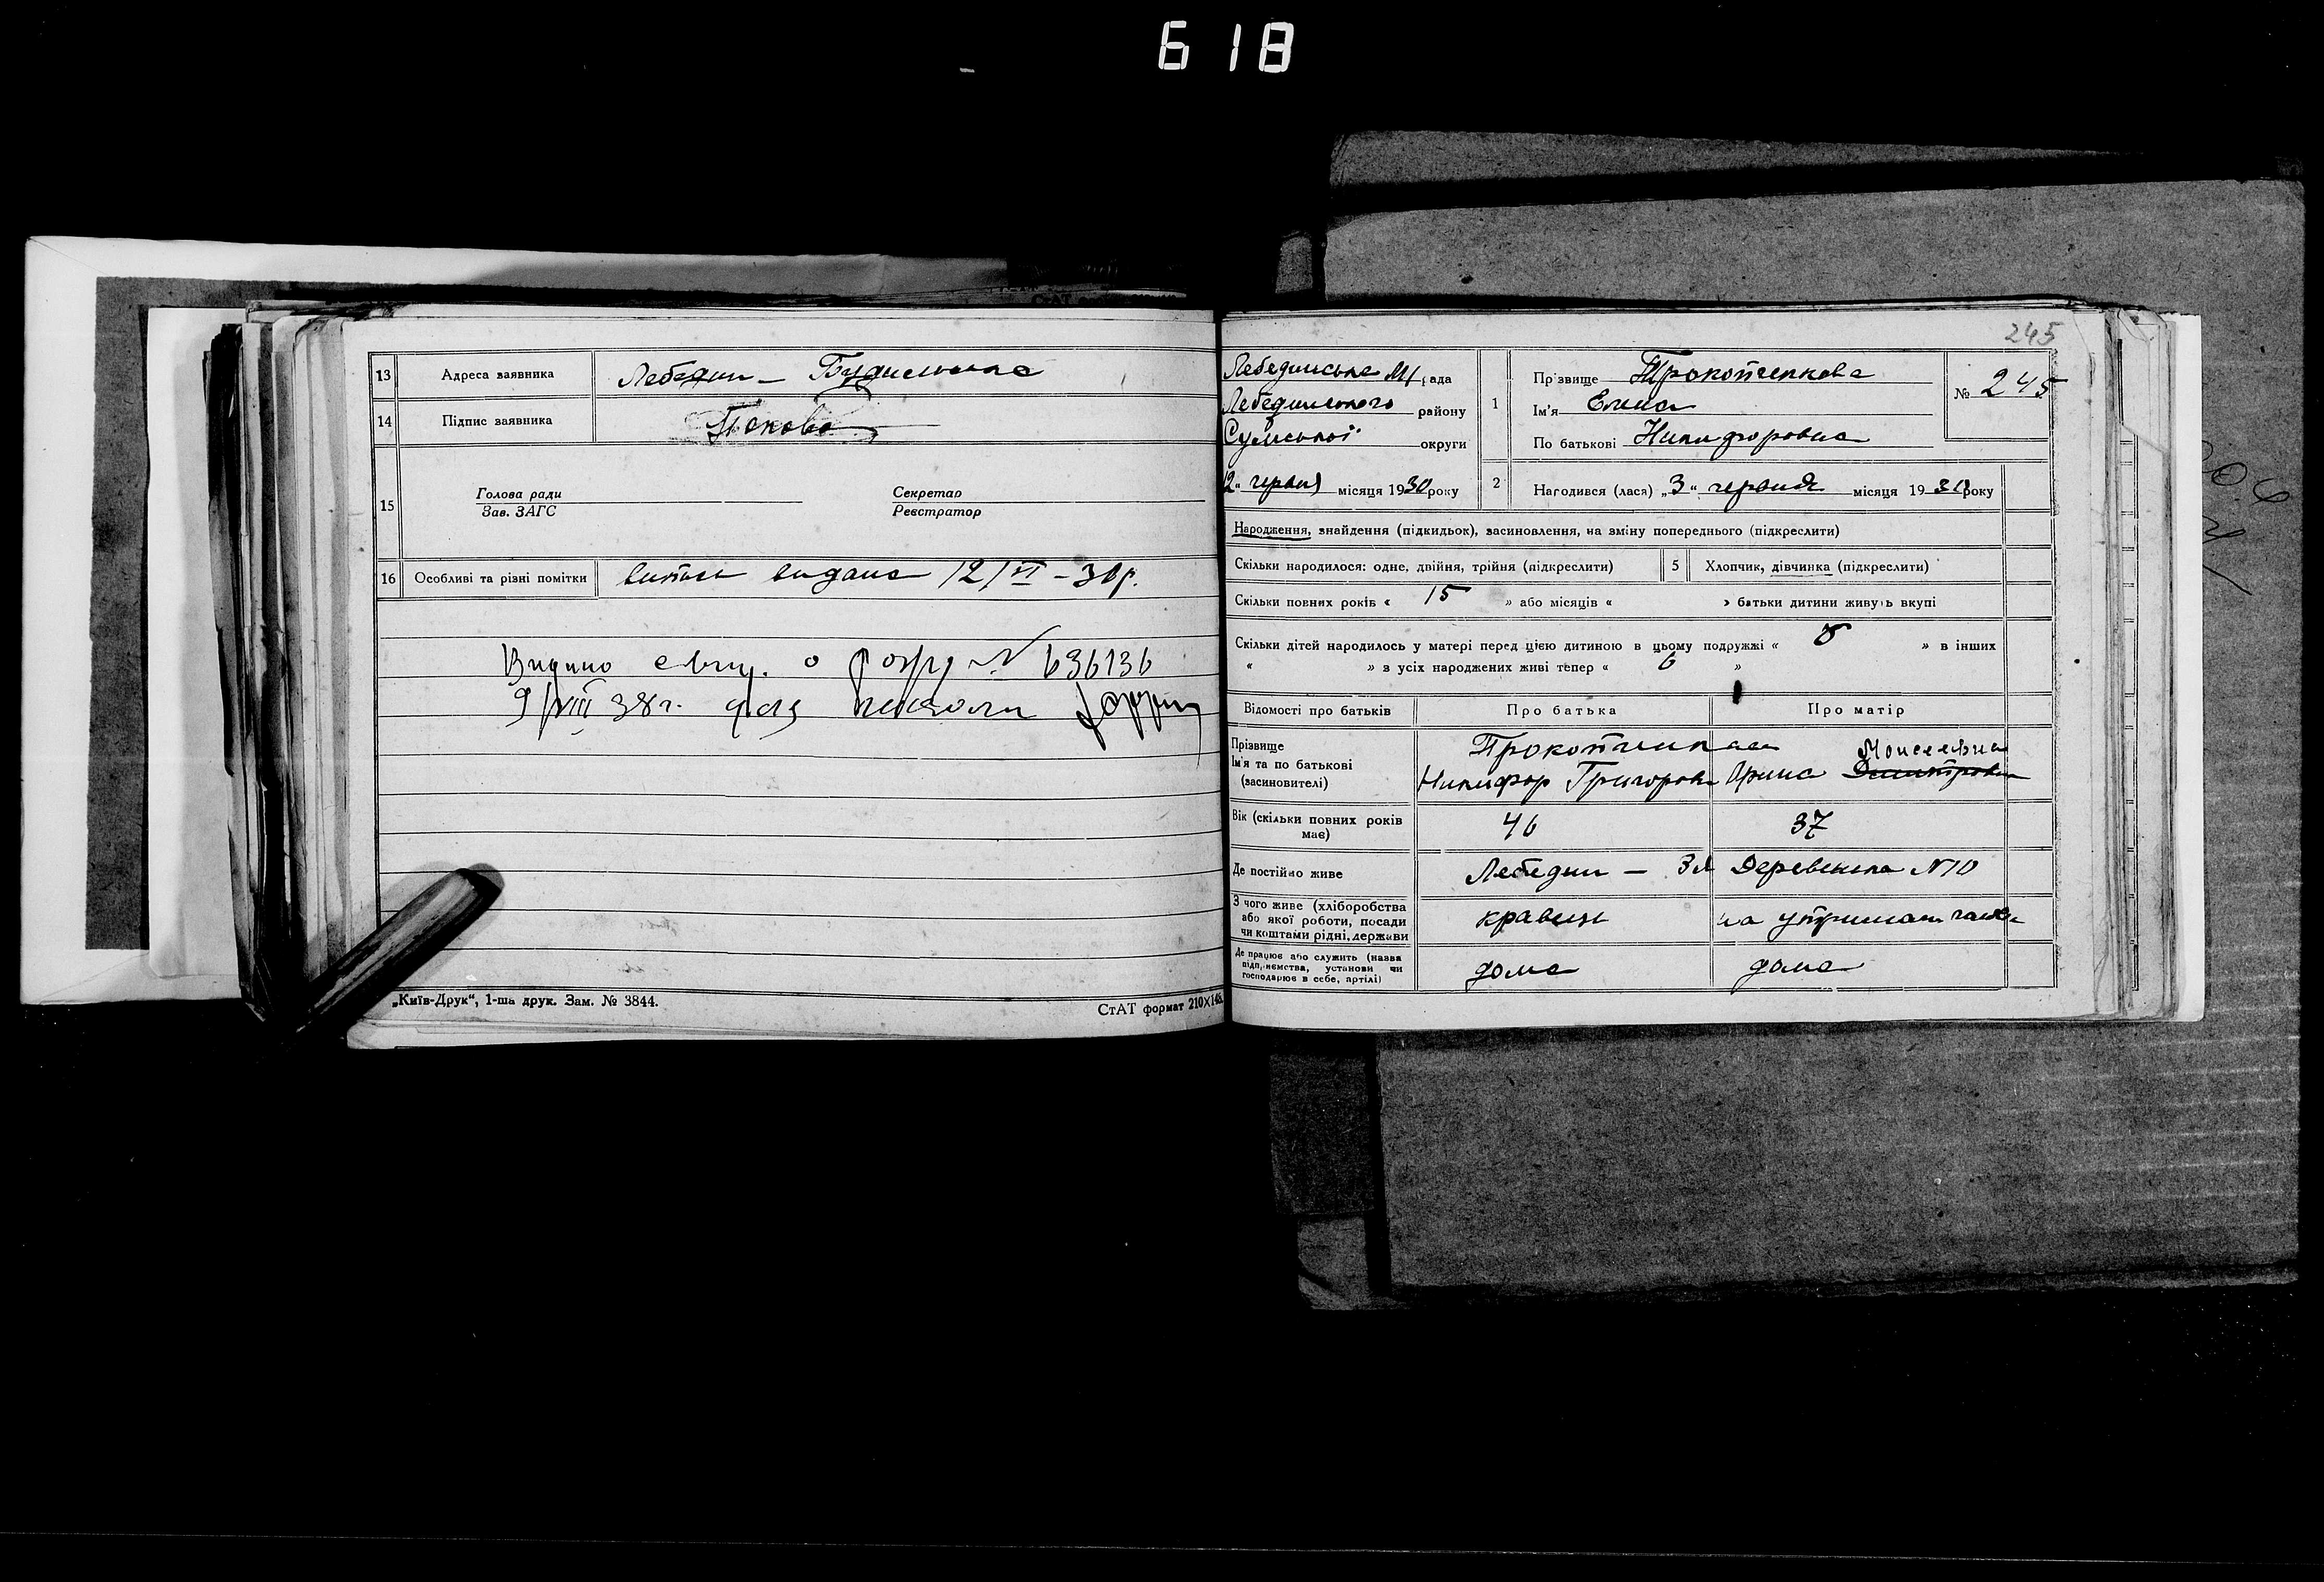 618
13 Адреса заявника Лебедин – Будильська
14 Підпис заявника
15 Голова ради Секретар
Зав. ЗАГС Реєстратор
16 Особливі та різні помітки витяг видана 12/VI – 30 р.
Видано о N 636136
9/VIII 38 г. для
„Київ-Друк“, 1-ша друк. Зам. № 3844.
СтАТ формат 210X148.
245
Лебединська М/рада
Лебединського району
Сумської округи
12 „ червня місяця 1930 року
1 Прізвище Прокопченкова
Ім'я Елена
По батькові Никифоровна
№ 245
2 Народився (лася) „3“ червня місяця 1930 року
Народження, знайдення (підкидьок), засиновлення, на зміну попереднього (підкреслити)
Скільки народилося: одне, двійня, трійня (підкреслити) 5 Хлопчик, дівчинка (підкреслити)
Скільки повних років « 15 » або місяців « » батьки дитини живуть вкупі
Скільки дітей народилось у матері перед цією дитиною в цьому подружжі « 8 » в інших
« » з усіх народжених живі тепер « 6 »
Відомості про батьків Про батька Про матір
Прізвище
Ім'я та по батькові
(засиновителі)
Прокопченкови
Никифор Григоров Орина Моисеевна
Вік (скільки повних років має) 46 37
Де постійно живе Лебедин – Деревенька N 10
З чого живе (хліборобства
або якої роботи, посади
чи коштами рідні, держави
кравець на утриман
Де працює або служить (назва
підприємства, установи чи
господарює в себе, артілі)
дома дома